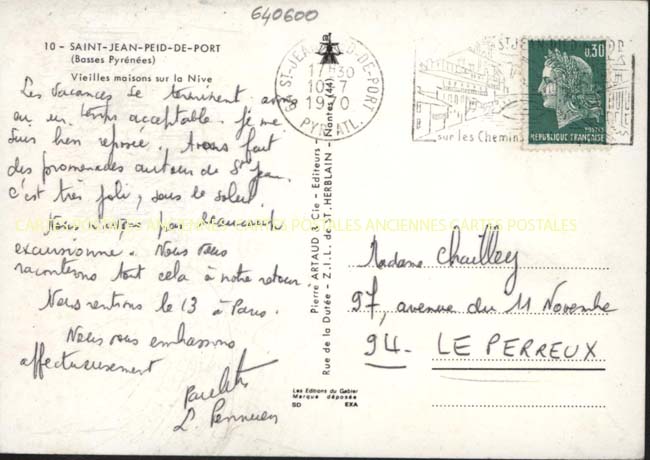 640600
10 - SAINT-JEAN-PEID-DE-PORT
(Basses Pyrénées)
Vieilles maisons sur la Nive
Les vacances se terminent. avons
eu un temps acceptable. Je me
suis bien reposée. Avons fait
des promenades autour de St Jean.
c'est très joli, sous le soleil.
Nous n'avons pas beaucoup
excursionné. Nous vous
raconterons tout cela à notre retour.
Nous rentrons le 13 à Paris.
Nous vous embrassons
affectueusement
CARTES POSTALES ANCIENNES CARTES POSTALES ANCIENNES CARTES POSTALES
Pierre ARTAUD & Cie - Editeurs -
Rue de la Dutée - Z.I.L. de ST. HERBLAIN - Nantes (44)
Les Editions du Gabier
Marque déposée
SD EXA
ST-JEAN-PIED-DE-PORT
17 H 30
10-7
1970
PYR. ATL.
ST JEAN PIED DE P
sur les Chemins
0,30
POSTES
REPUBLIQUE FRANÇAISE
Madame Chailley
97, avenue du 11 Novembre
94 - LE PERREUX